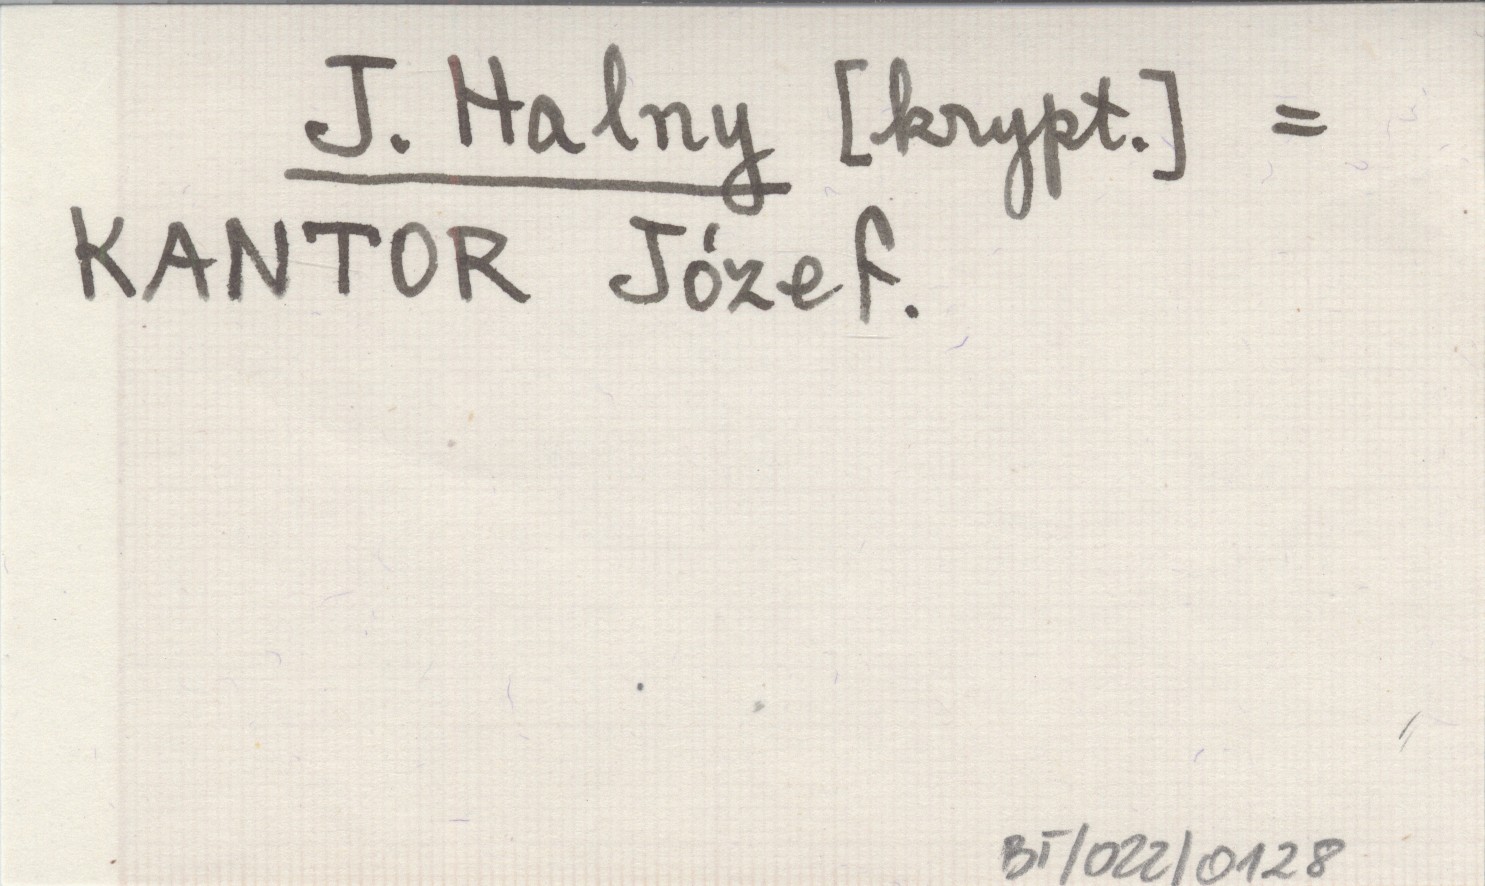 J. Halny [krypt.] =
KANTOR Józef.
BT/022/0128